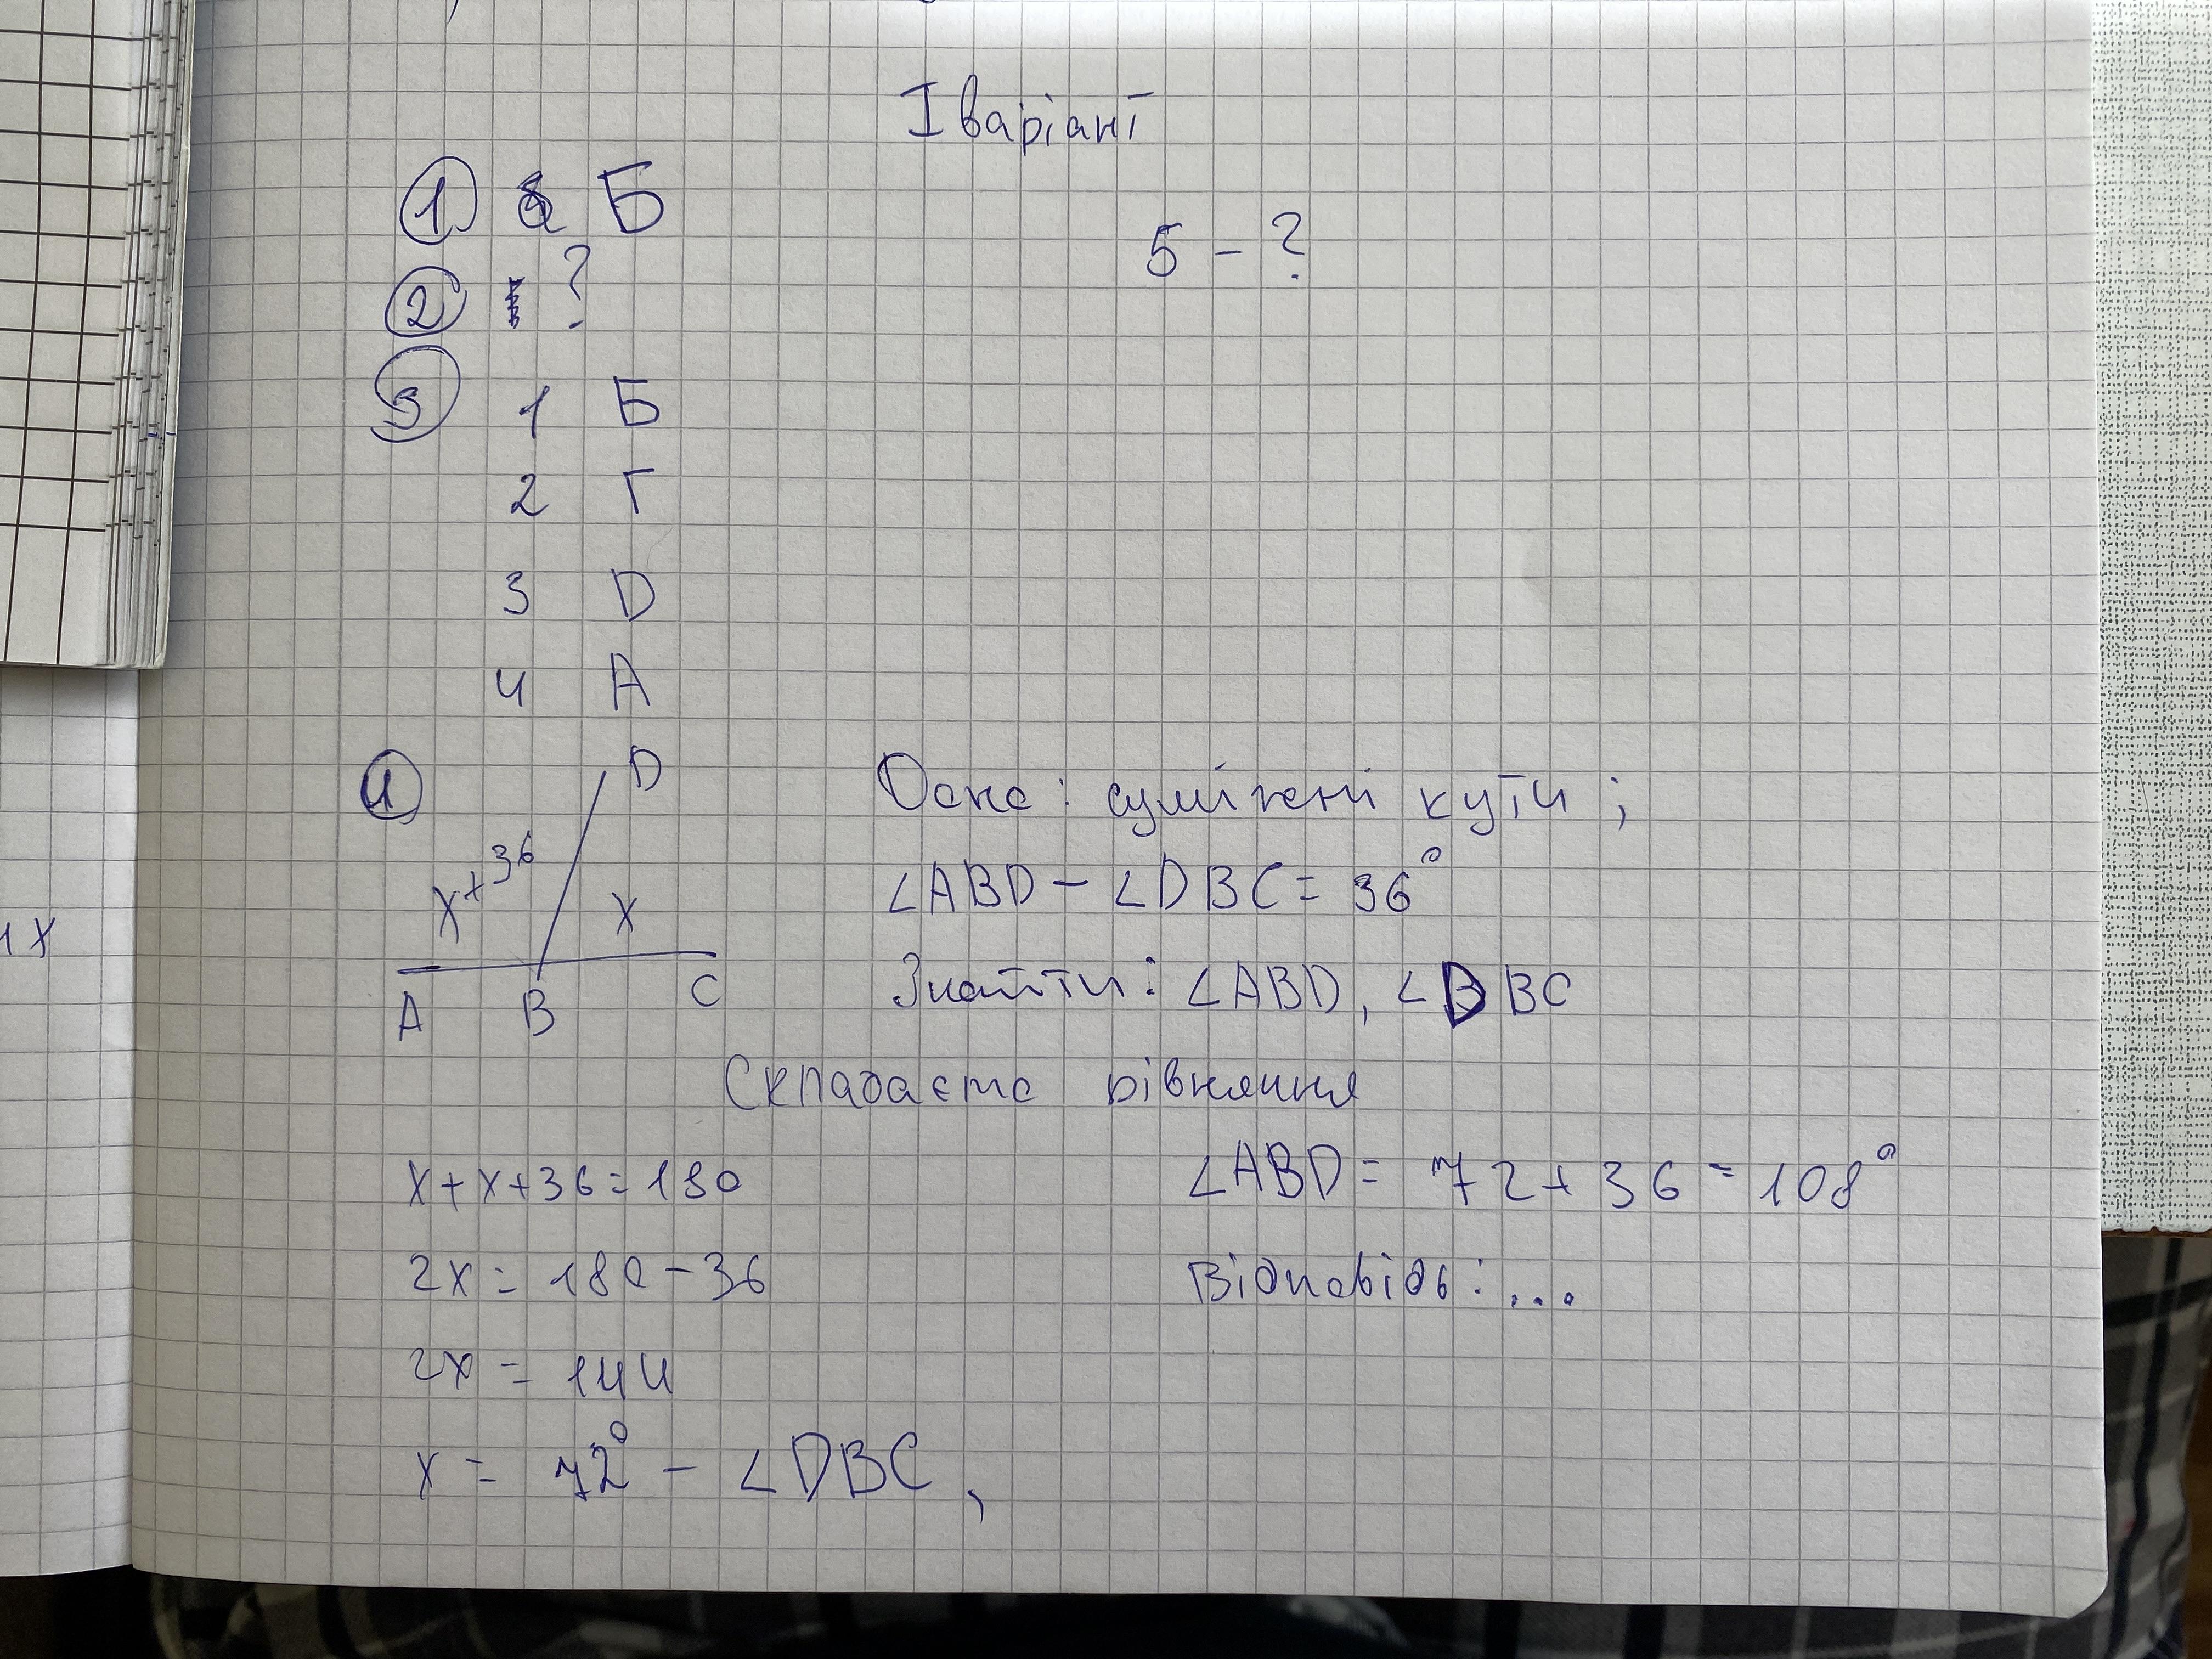 І варіант
① Б
5 - ?
② ?
③ 1 Б
2 Г
3 D
4 А
④ D
x+36
x
A B C
Дано: суміжні кути;
∠ABD - ∠DBC = 36°
Знайти: ∠ABD, ∠DBC
Складаємо рівняння
x+x+36=180
2x = 180-36
2x = 144
x = 72° - ∠DBC,
∠ABD = 72+36 = 108°
Відповідь: ...
1x